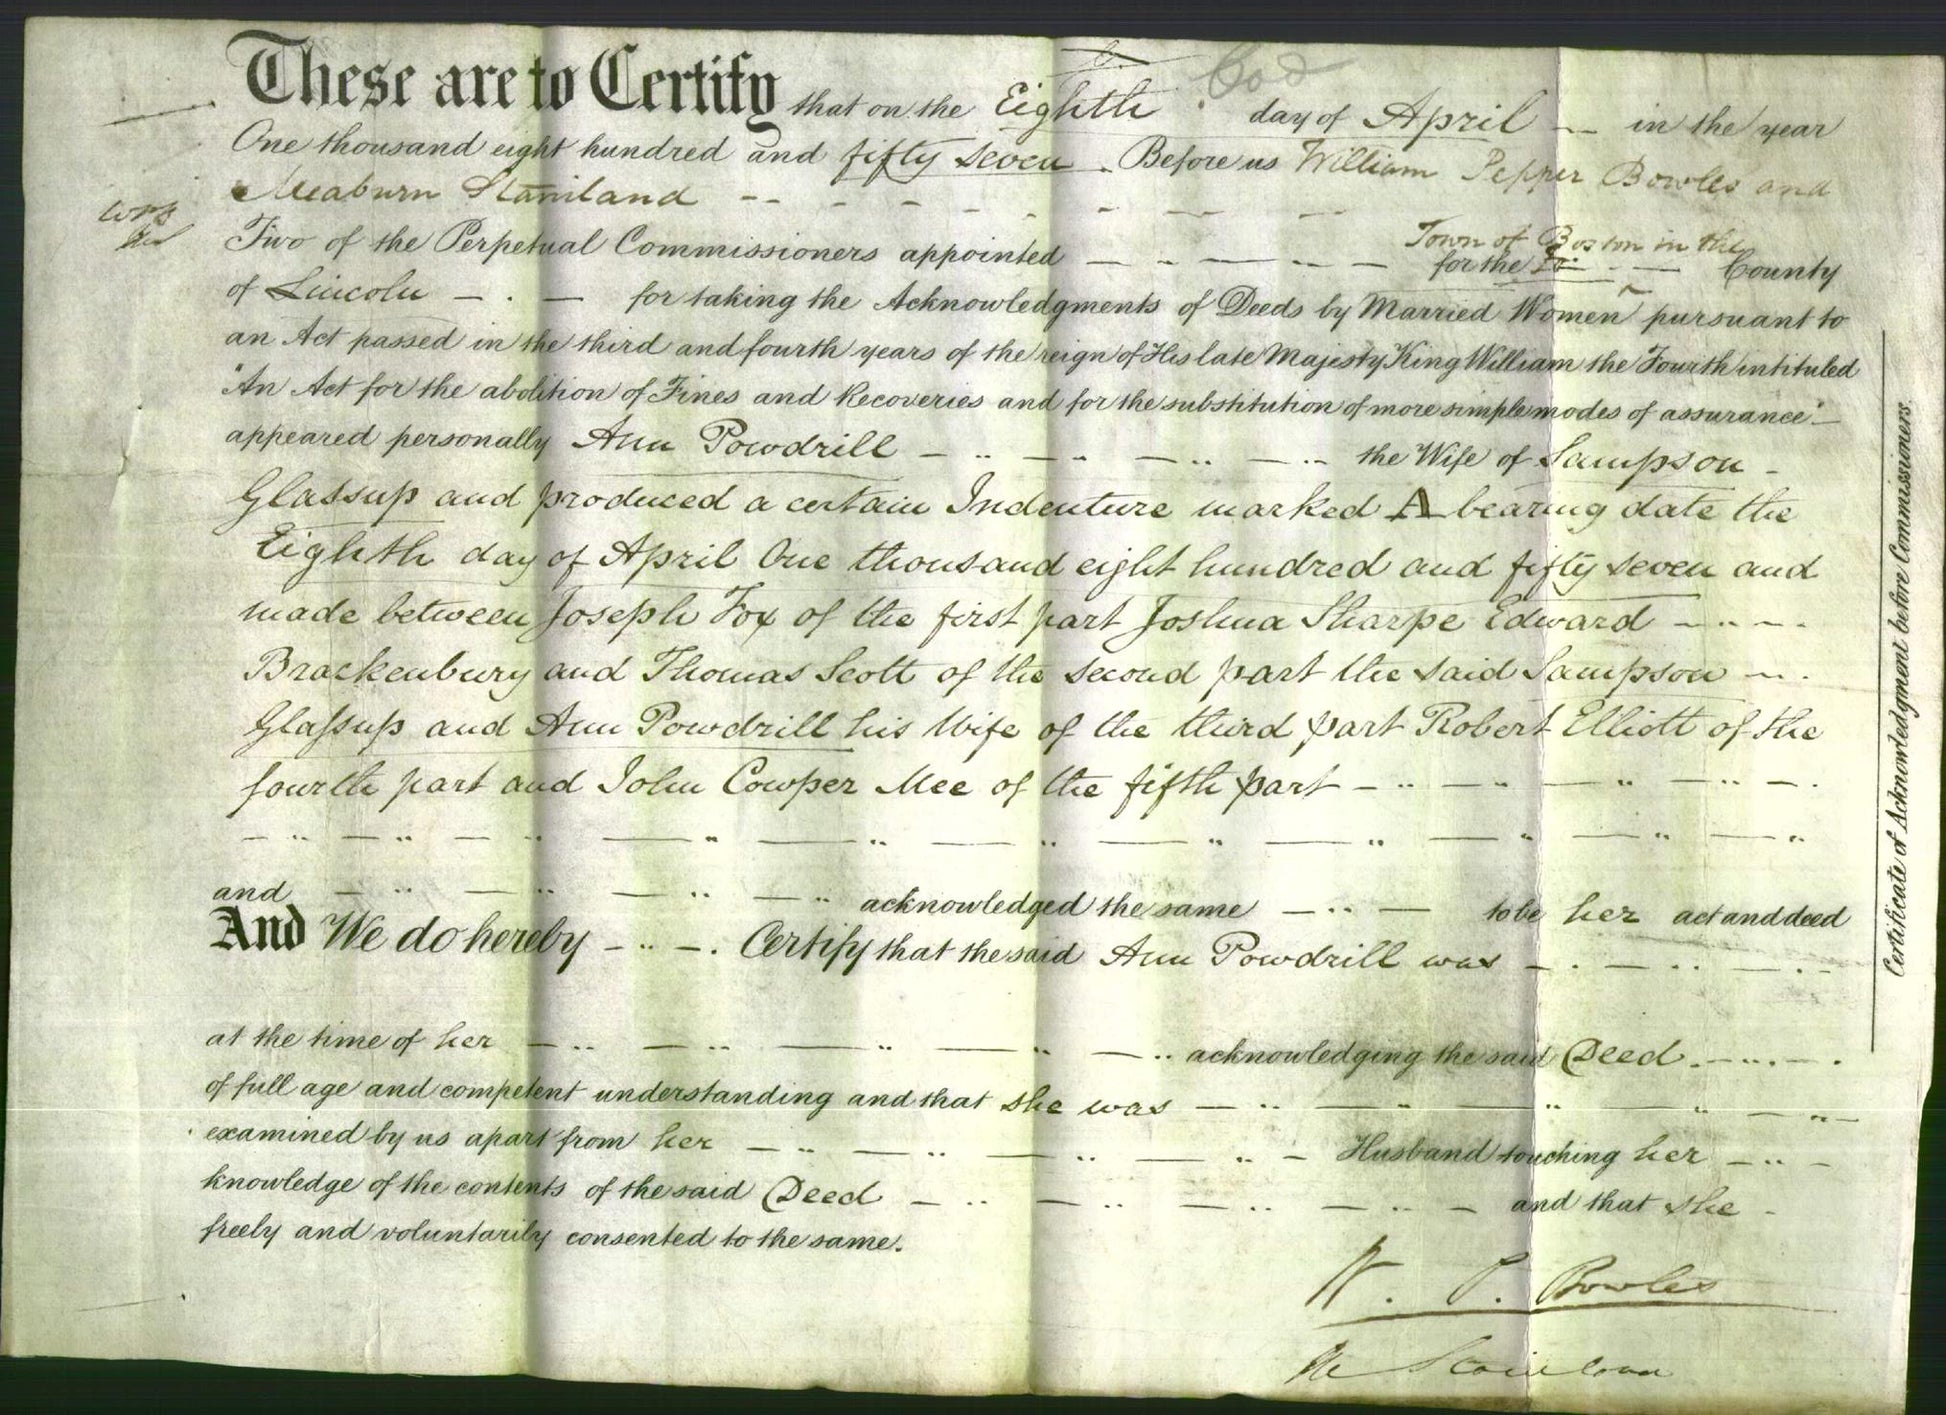 These are to Certify that on the Eighth day of April in the year
One thousand eight hundred and fifty seven Before us William Pepper Bowles and
Meaburn Staniland
Two of the Perpetual Commissioners appointed for the Town of Boston in the County
of Lincoln for taking the Acknowledgments of Deeds by Married Women pursuant to
an Act passed in the third and fourth years of the reign of His late Majesty King William the Fourth intituled
"An Act for the abolition of Fines and Recoveries and for the substitution of more simple modes of assurance"
appeared personally Ann Powdrill the Wife of Sampson
Glassup and produced a certain Indenture marked A bearing date the
Eighth day of April One thousand eight hundred and fifty seven and
made between Joseph Fox of the first part Joshua Sharpe Edward
Brackenbury and Thomas Scott of the second part the said Sampson
Glassup and Ann Powdrill his Wife of the third part Robert Elliott of the
fourth part and John Cowper Mee of the fifth part
and acknowledged the same to be her act and deed
And We do hereby Certify that the said Ann Powdrill was
at the time of her acknowledging the said Deed
of full age and competent understanding and that she was
examined by us apart from her Husband touching her
knowledge of the contents of the said Deed and that she
freely and voluntarily consented to the same.
W. P. Bowles
M Staniland
Certificate of Acknowledgment before Commissioners.